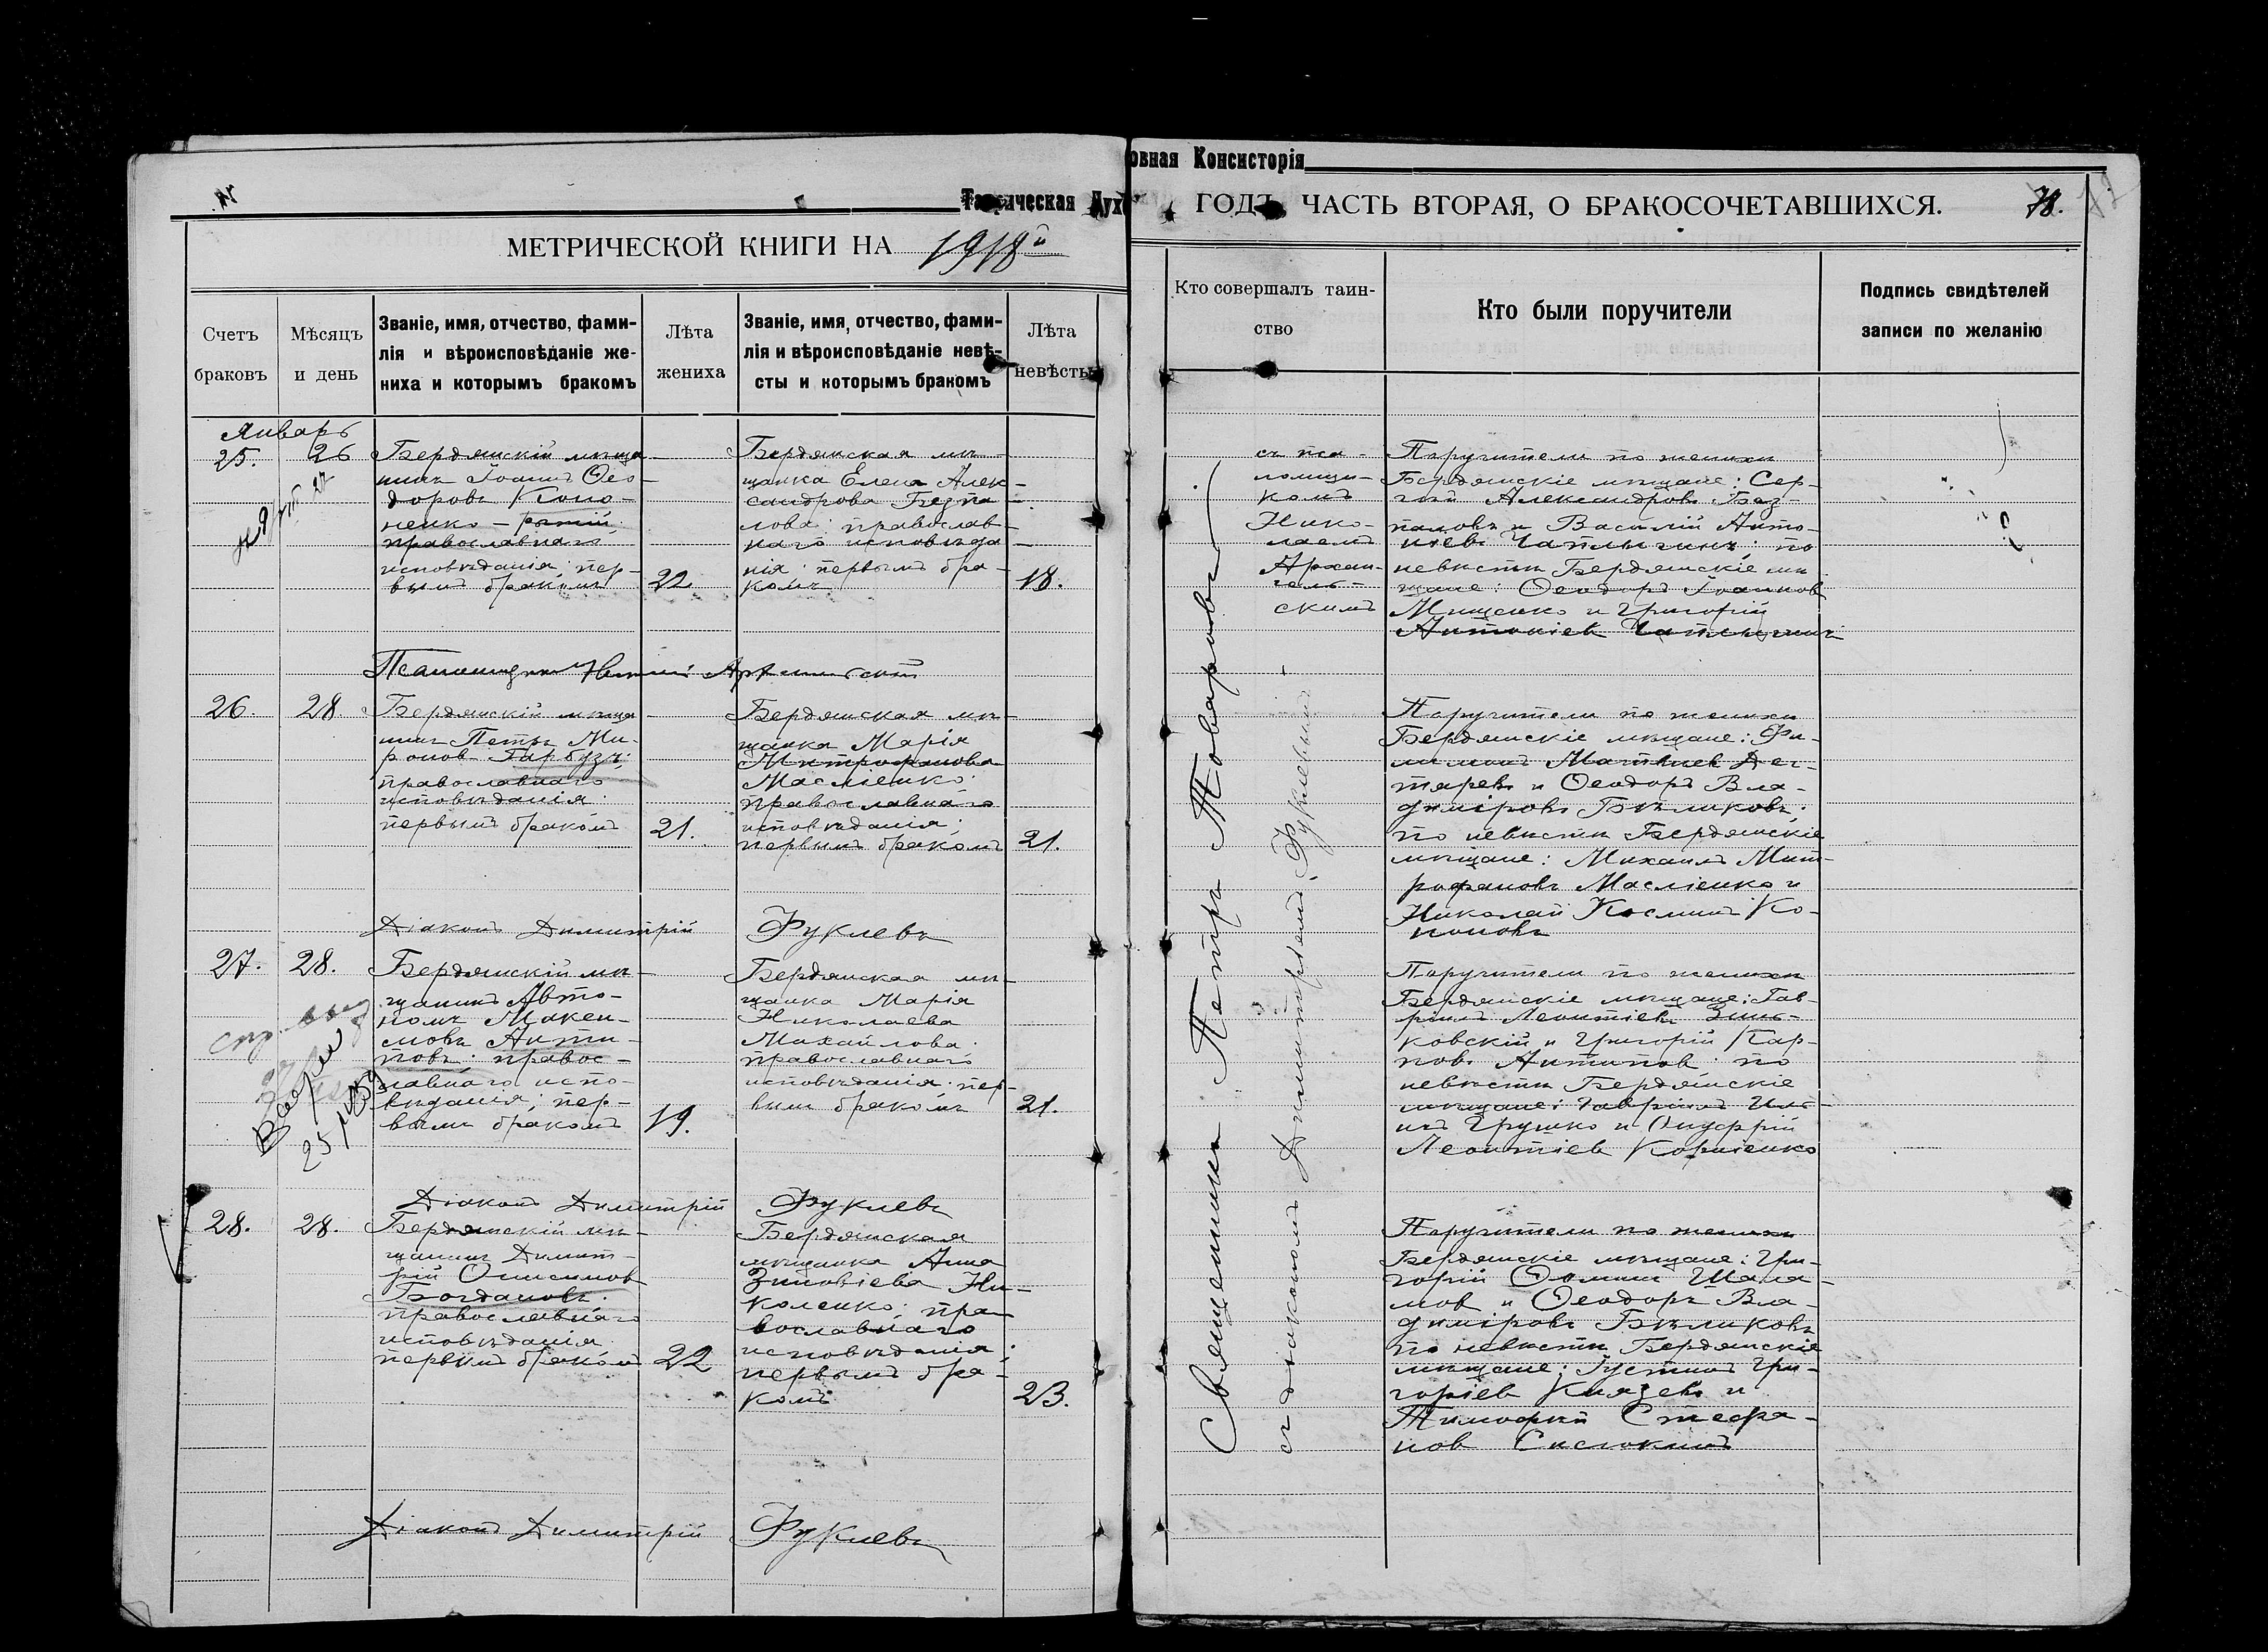 Таврическая Духовная Консисторія
МЕТРИЧЕСКОЙ КНИГИ НА 1918й
ГОДЪ, ЧАСТЬ ВТОРАЯ, О БРАКОСОЧЕТАВШИХСЯ.
78.
Счетъ
браковъ
Мѣсяцъ
и день
Званіе, имя, отчество, фами-
лія и вѣроисповѣданіе же-
ниха и которымъ бракомъ
Лѣта
жениха
Званіе, имя, отчество, фами-
лія и вѣроисповѣданіе невѣ-
сты и которымъ бракомъ
Лѣта
невѣсты
Кто совершалъ таин-
ство
Кто были поручители
Подпись свидѣтелей
записи по желанію
Январь
25.
26
Бердянскій мѣща-
нинъ Іоаннъ Ѳео-
доровъ Коно-
ненко
православнаго
исповѣданія; пер-
вымъ бракомъ
22
Бердянская мѣ-
щанка Елена Алек-
сандрова Безпа-
лова; православ-
наго исповѣда-
нія; первымъ бра-
комъ
18.
съ пса-
ломщи-
комъ
Нико-
лаемъ
Архан-
гель-
скимъ
Поручители по женихѣ
Бердянскіе мѣщане: Сер-
гій Александровъ Без-
паловъ и Василій Анто-
ніевъ Чаплыгинъ; по
невѣстѣ Бердянскіе мѣ-
щане: Ѳеодоръ Іоаннов
Мищенко и Григорій
Антоніев Чаплыгинъ
Псаломщикъ Николай Архангельскій
26.
28.
Бердянскій мѣща-
нинъ Петръ Ми-
ронов Гарбузъ;
православнаго
исповѣданія;
первымъ бракомъ
21.
Бердянская мѣ-
щанка Марія
Митрофанова
Масліенко;
православнаго
исповѣданія;
первымъ бракомъ
21.
Поручители по женихѣ
Бердянскіе мѣщане: Фи-
лимонъ Матѳіев Дег-
тяревъ и Ѳеодоръ Вла-
диміровъ Бѣликовъ;
по невѣстѣ Бердянскіе
мѣщане: Михаилъ Мит-
рофановъ Масліенко и
Николай Косминъ Ко-
ноновъ
Діаконъ Димитрій Фуклевъ
27.
28.
Бердянскій мѣ-
щанинъ Авто-
номъ Макси-
мовъ Анти-
повъ; правос-
лавнаго испо-
вѣданія; пер-
вымъ бракомъ
19.
Бердянская мѣ-
щанка Марія
Николаева
Михайлова;
православнаго
исповѣданія; пер-
вымъ бракомъ
21.
Поручители по женихѣ
Бердянскіе мѣщане: Гав-
ріилъ Леонтіевъ Зинь-
ковскій и Григорій Кар-
повъ Антипов; по
невѣстѣ Бердянскіе
мѣщане: Гавріилъ Иль-
инъ Грушко и Онуфрій
Леонтіев Корніенко
Діаконъ Димитрій Фуклевъ
28.
28.
Бердянскій мѣ-
щанинъ Димит-
рій Онисимов
Богдановъ;
православнаго
исповѣданія
первымъ бракомъ
22
Бердянская
мѣщанка Анна
Зиновіева Ни-
коленко; пра-
вославнаго
исповѣданія;
первымъ бра-
комъ
23.
Поручители по женихѣ
Бердянскіе мѣщане: Гри-
горій Ѳоминъ Шала-
мов и Ѳеодоръ Вла-
диміровъ Бѣликовъ
по невѣстѣ Бердянскіе
мѣщане: Іустинъ Гри-
горіев Князевъ и
Тимоѳей Стефа-
нов Сислюкинъ
Діаконъ Димитрій Фуклевъ
Священникъ Петръ Товаровъ
съ діакономъ Димитріемъ Фуклевымъ